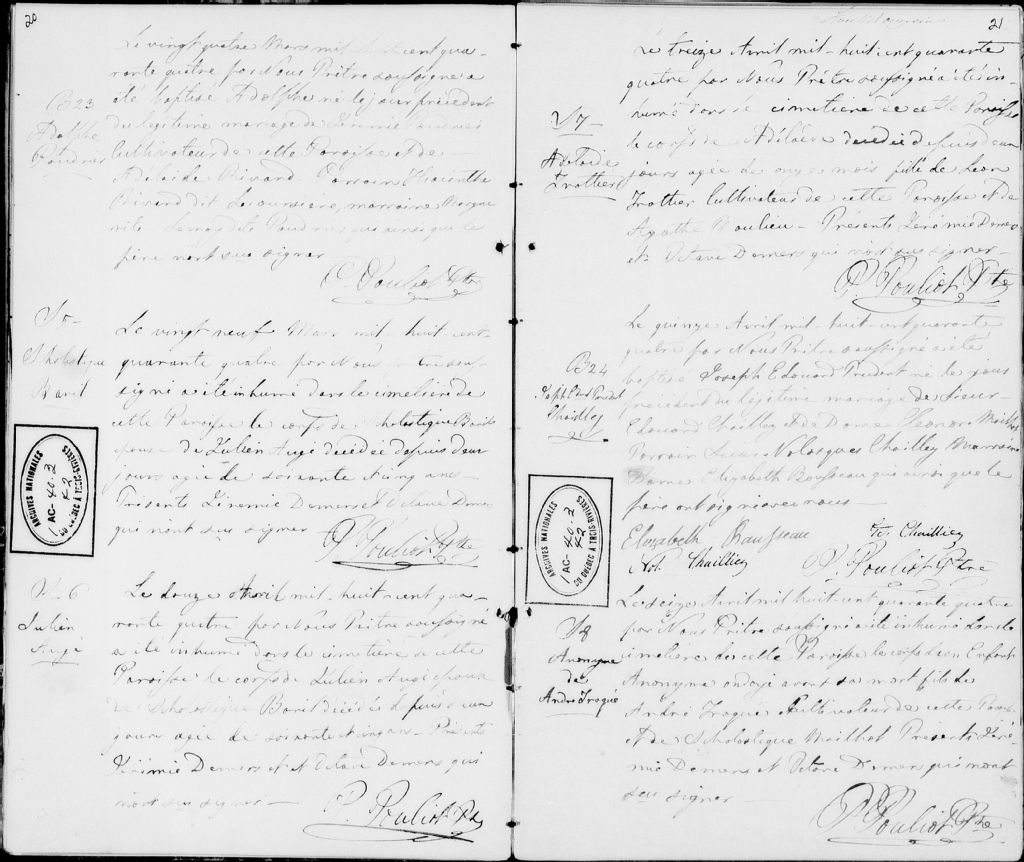 20
B23
Adolphe
Le vingt quatre Mars mil huit cent qua-
rante quatre par Nous Prêtre soussigné a
été baptisé Adolphe né le jour précédent
du légitime mariage de
Cultivateur de cette Paroisse et de
Adelaide Rivard Parrain Hiacinthe
Rivard dit marraine Margue
rite qui ainsi que le
père n'ont su signer
P. Pouliot Ptre
S5
Scholastique
Baril
Le vingt neuf Mars mil huit cent
quarante quatre par Nous Prêtre sous
signé a été inhumé dans le cimetière de
cette Paroisse le corps de Scholastique Baril
épouse de Julien Augé décédée depuis deux
jours agée de soixante et cinq ans
Présents Jérémie Demers et Octave Demers
qui n'ont su signer
P. Pouliot Ptre
ARCHIVES NATIONALES
1 AC-40.2
42
DU QUÉBEC À TROIS-RIVIÈRES
S 6
Julien
Augé
Le douze Avril mil-huit-cent qua-
rante quatre par Nous Prêtre soussigné
a été inhumé dans le cimetière de cette
Paroisse le corps de Julien Augé époux
de Scholastique Baril décédé depuis
jours agé de soixante et cinq ans. Présents
Jérémie Demers et Octave Demers qui
n'ont su signer
P. Pouliot Ptre
21
S7
Adelaide
Trottier
Le treize Avril mil-huit cent quarante
quatre par Nous Prêtre soussigné a été in-
humé dans le cimetière de cette Paroisse
le corps de Adélaide décédée depuis deux
jours agée de onze mois fille de Léon
Trottier Cultivateur de cette Paroisse et de
Agathe Beaulieu - Présents Jérémie Demers
et Octave Demers qui n'ont su signer
P. Pouliot Ptre
B24
Joseph Ed Prudent
Chaillez
Le quinze Avril mil-huit-cent quarante
quatre par Nous Prêtre soussigné a été
baptisé Joseph Edouard Prudent né le jour
précédent du légitime mariage de Sieur
Edouard Chaillez et de Dame Eleonor Mailhot
Parrain Chaillez Marraine
Dame Elizabeth qui ainsi que le
père ont signé avec nous
Elizabeth
Ed. Chaillez
Chaillez
P. Pouliot Ptre
ARCHIVES NATIONALES
1 AC-40.2
42
DU QUÉBEC À TROIS-RIVIÈRES
S8
Anonyme
de
André Troqué
Le seize Avril mil huit cent quarante quatre
par Nous Prêtre soussigné a été inhumé dans le
cimetière de cette Paroisse le corps d'un Enfant
Anonyme ondoyé avant sa mort fils de
André Troqué Cultivateur de cette Paroisse
et de Scholastique Mailhot Présents Jéré-
mie Demers et Octave Demers qui n'ont
su signer
P. Pouliot Ptre